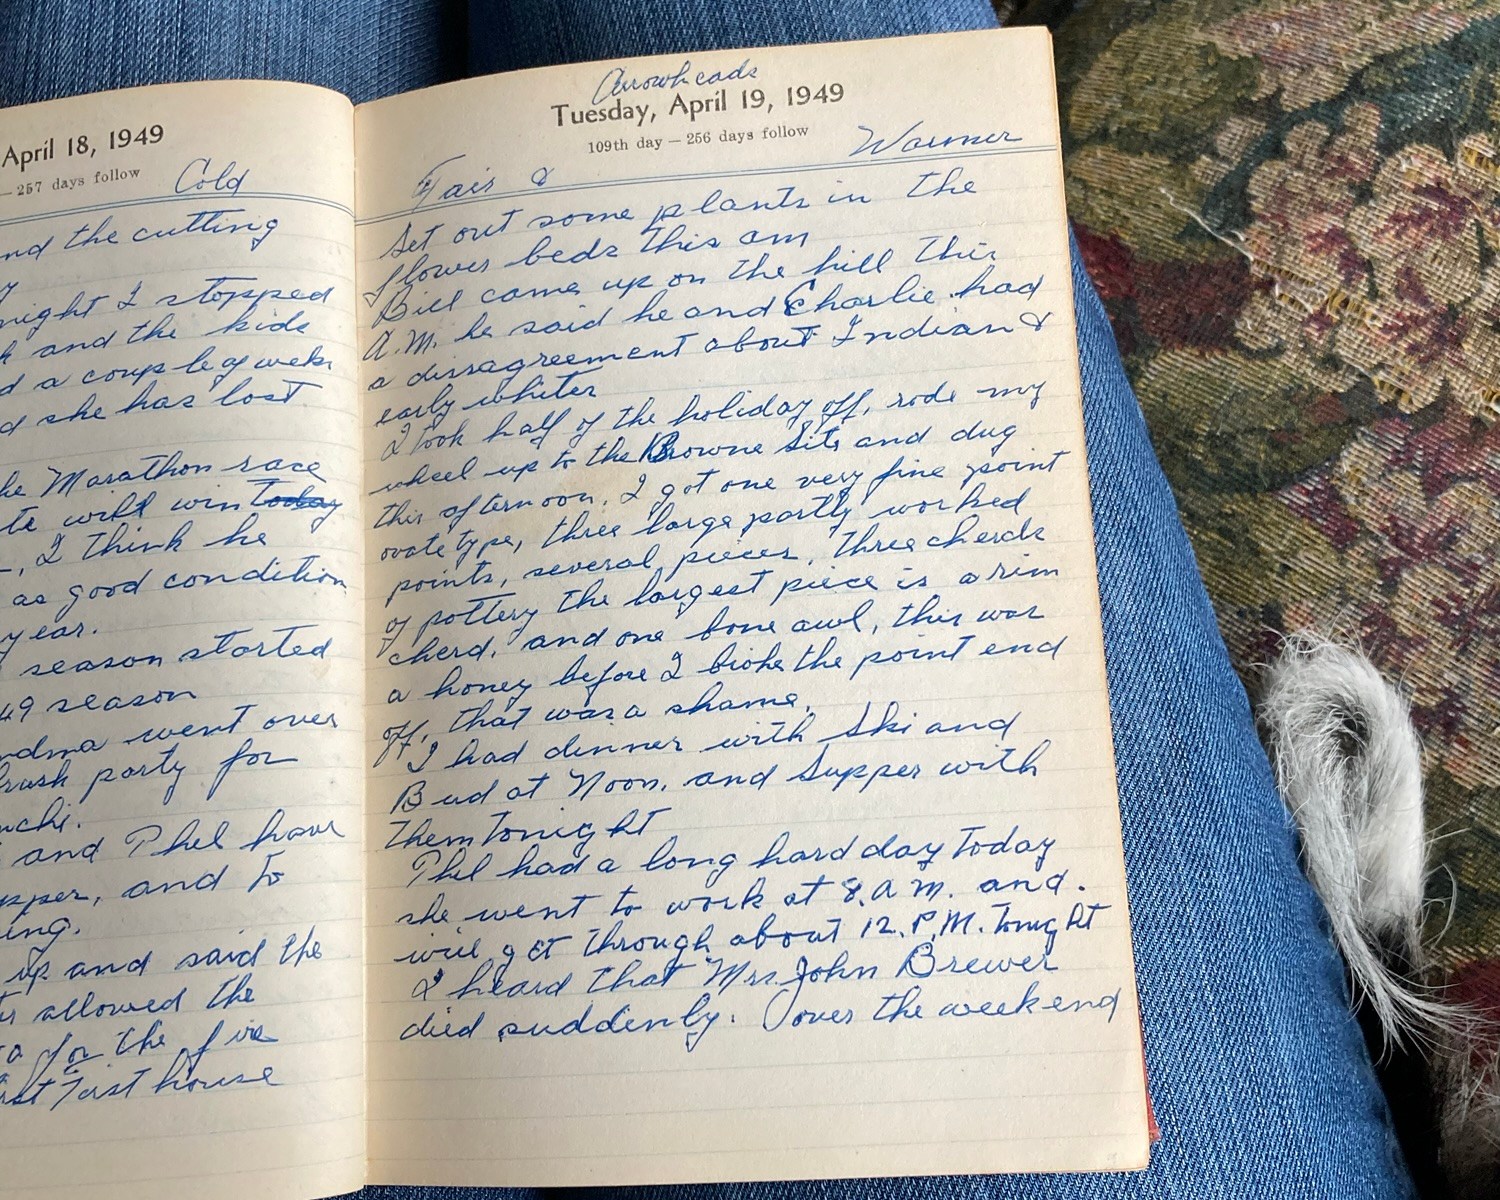 April 18, 1949
— 257 days follow
Cold
nd the cutting
night I stopped
and the kids
d a couple of weeks
d she has lost
he Marathon race
te will win today
, I think he
as good condition
year.
season started
49 season
ndma went over
party for
and Phel have
pper, and to
ing.
up and said the
allowed the
for the fire
house
Arrowheads
Tuesday, April 19, 1949
109th day — 256 days follow
Fair & Warmer
Set out some plants in the
flower beds this am
Bill came up on the hill this
A.M. he said he and Charlie had
a dissagreement about Indian &
early whites
I took half of the holiday off, rode my
wheel up to the Browne Site and dug
this afternoon. I got one very fine point
ovate type, three large partly worked
points, several pieces, three cherds
of pottery the largest piece is a rim
cherd, and one bone awl, this was
a honey before I broke the point end
off, that was a shame.
I had dinner with Ski and
Bud at Noon, and Supper with
them tonight
Phel had a long hard day today
she went to work at 8.A.M. and.
will get through about 12.P.M. tonight
I heard that Mrs. John Brewer
died suddenly. over the weekend